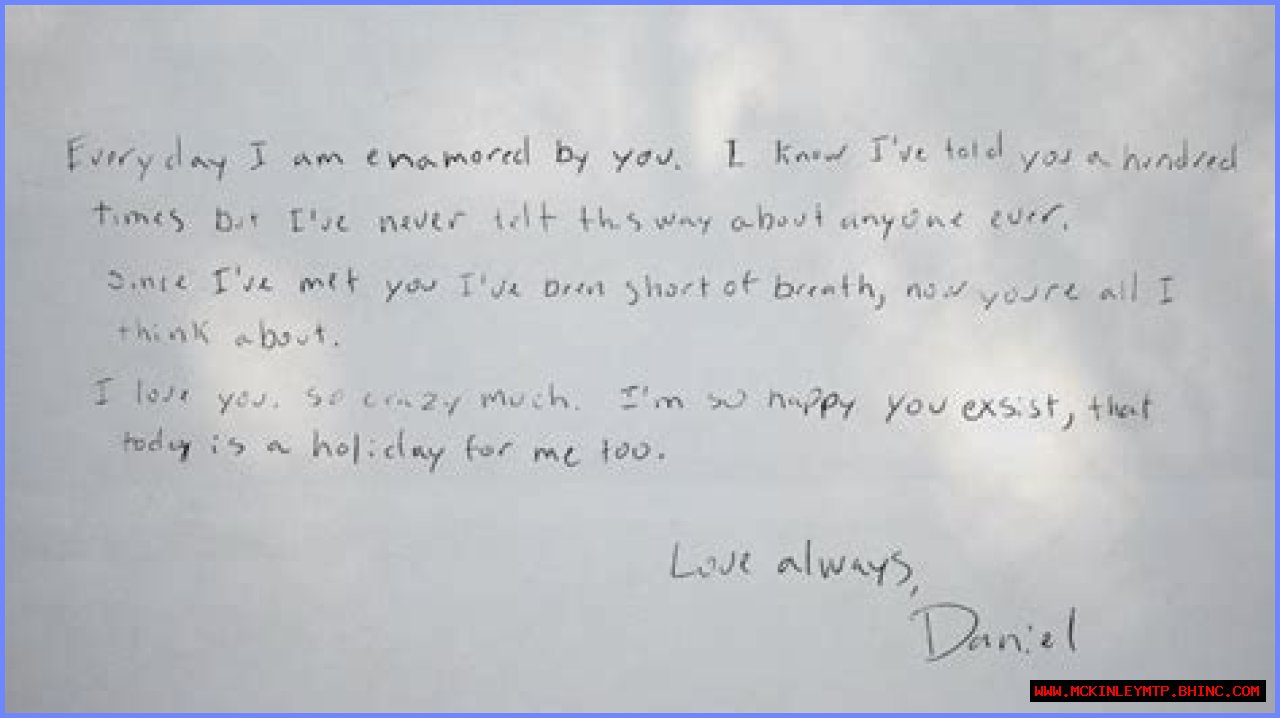 Everyday I am enamored by you. I know I've told you a hundred
times but I've never felt this way about anyone ever.
Since I've met you I've been short of breath, now you're all I
think about.
I love you. so crazy much. I'm so happy you exsist, that
today is a holiday for me too.
Love always,
Daniel
WWW.MCKINLEYMTP.BHINC.COM